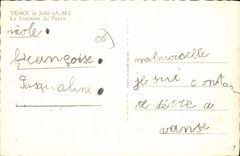 VENCE la Jolie (A.-M.)
La Fontaine du Peyra
nicole.
françoise.
Pasqualini.
06
malmoiselle
je sui contan
de
a
vanse